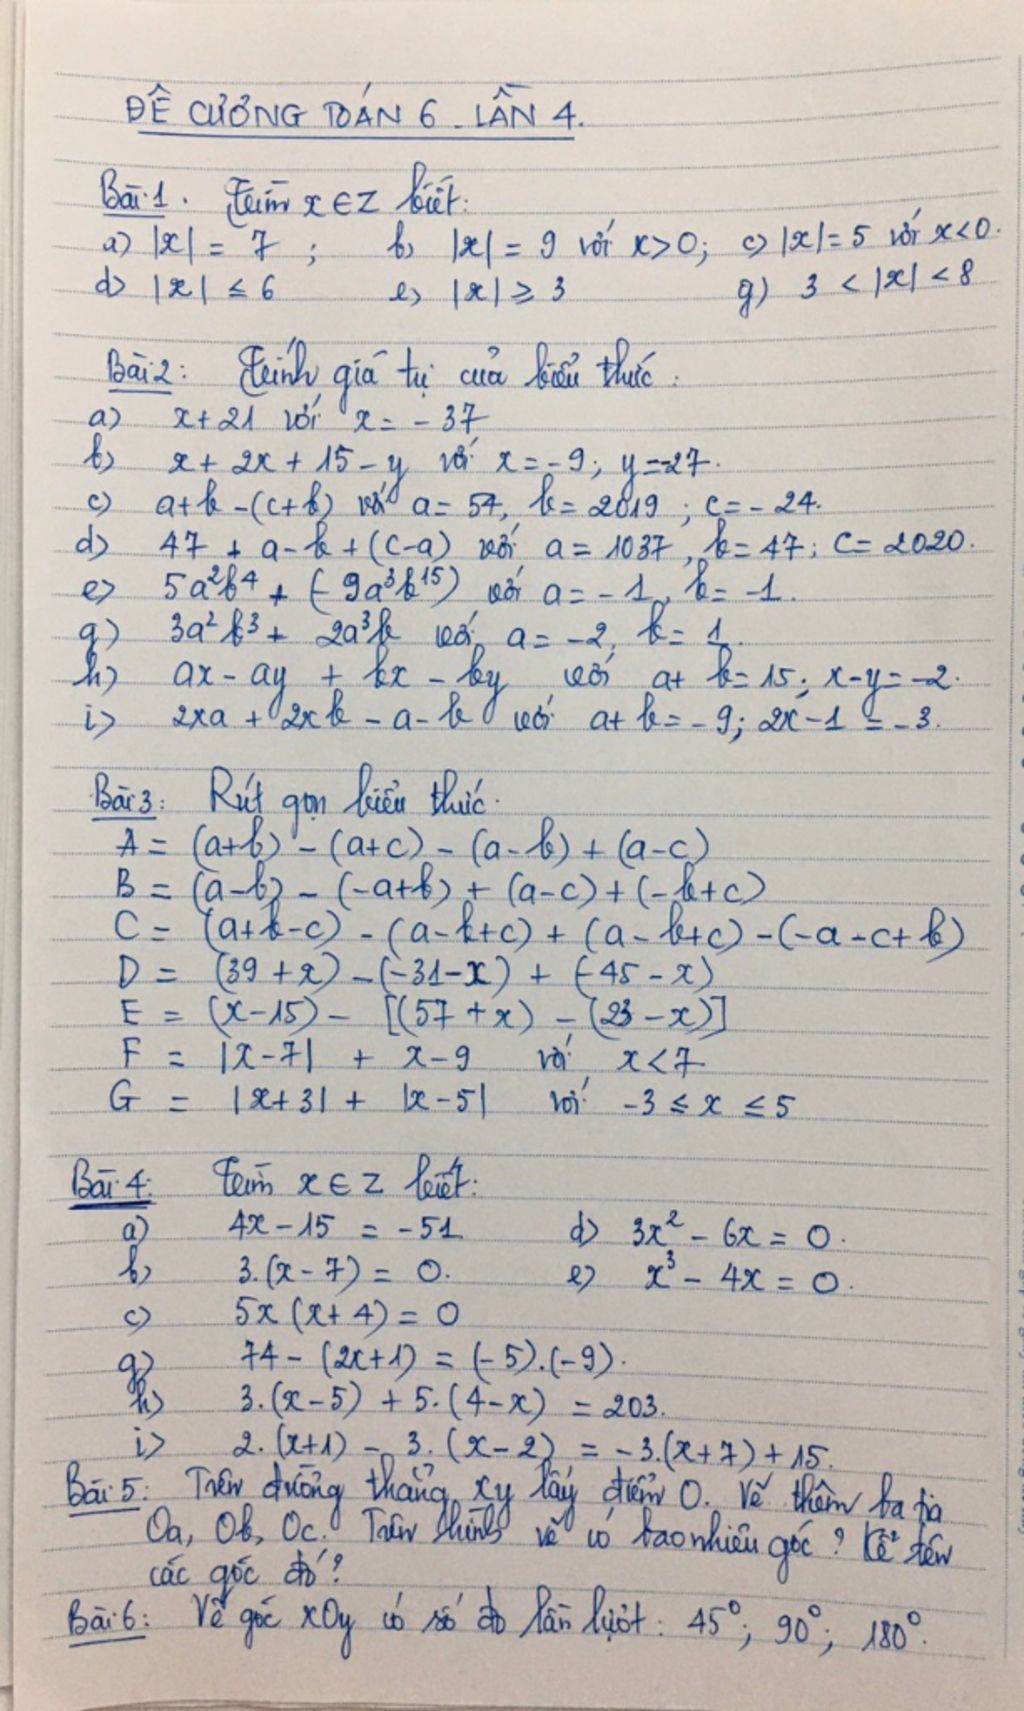 ĐỀ CƯƠNG TOÁN 6 - LẦN 4.
Bài 1. Tìm x ∈ Z biết:
a) |x| = 7 ; b) |x| = 9 với x>0; c) |x| = 5 với x<0.
d) |x| ≤ 6 e) |x| ≥ 3 g) 3 < |x| < 8
Bài 2: Tính giá trị của biểu thức:
a) x+21 với x = -37
b) x + 2x + 15 - y với x = -9; y = -27.
c) a+b-(c+b) với a = 57, b = 2019 ; c = -24.
d) 47 + a-b+(c-a) với a = 1037, b = 47; c = 2020.
e) 5a²b⁴ + (-9a³b¹⁵) với a = -1, b = -1.
g) 3a²b³ + 2a³b với a = -2, b = 1.
h) ax - ay + bx - by với a+b = 15; x-y = -2.
i) 2xa + 2xb - a - b với a+b = -9; 2x-1 = -3.
Bài 3: Rút gọn biểu thức.
A = (a+b) - (a+c) - (a-b) + (a-c)
B = (a-b) - (-a+b) + (a-c) + (-b+c)
C = (a+b-c) - (a-b+c) + (a-b+c) - (-a-c+b)
D = (39+x) - (-31-x) + (-45-x)
E = (x-15) - [(57+x) - (23-x)]
F = |x-7| + x-9 với x<7.
G = |x+3| + |x-5| với -3 ≤ x ≤ 5
Bài 4: Tìm x ∈ Z biết:
a) 4x-15 = -51 d) 3x² - 6x = 0.
b) 3.(x-7) = 0. e) x³ - 4x = 0.
c) 5x(x+4) = 0
g) 74 - (2x+1) = (-5).(-9).
h) 3.(x-5) + 5.(4-x) = 203.
i) 2.(x+1) - 3.(x-2) = -3.(x+7) + 15.
Bài 5: Trên đường thẳng xy lấy điểm O. Vẽ thêm ba tia
Oa, Ob, Oc. Trên hình vẽ có bao nhiêu góc? Kể tên
các góc đó?
Bài 6: Vẽ góc xOy có số đo lần lượt: 45°; 90°; 180°.